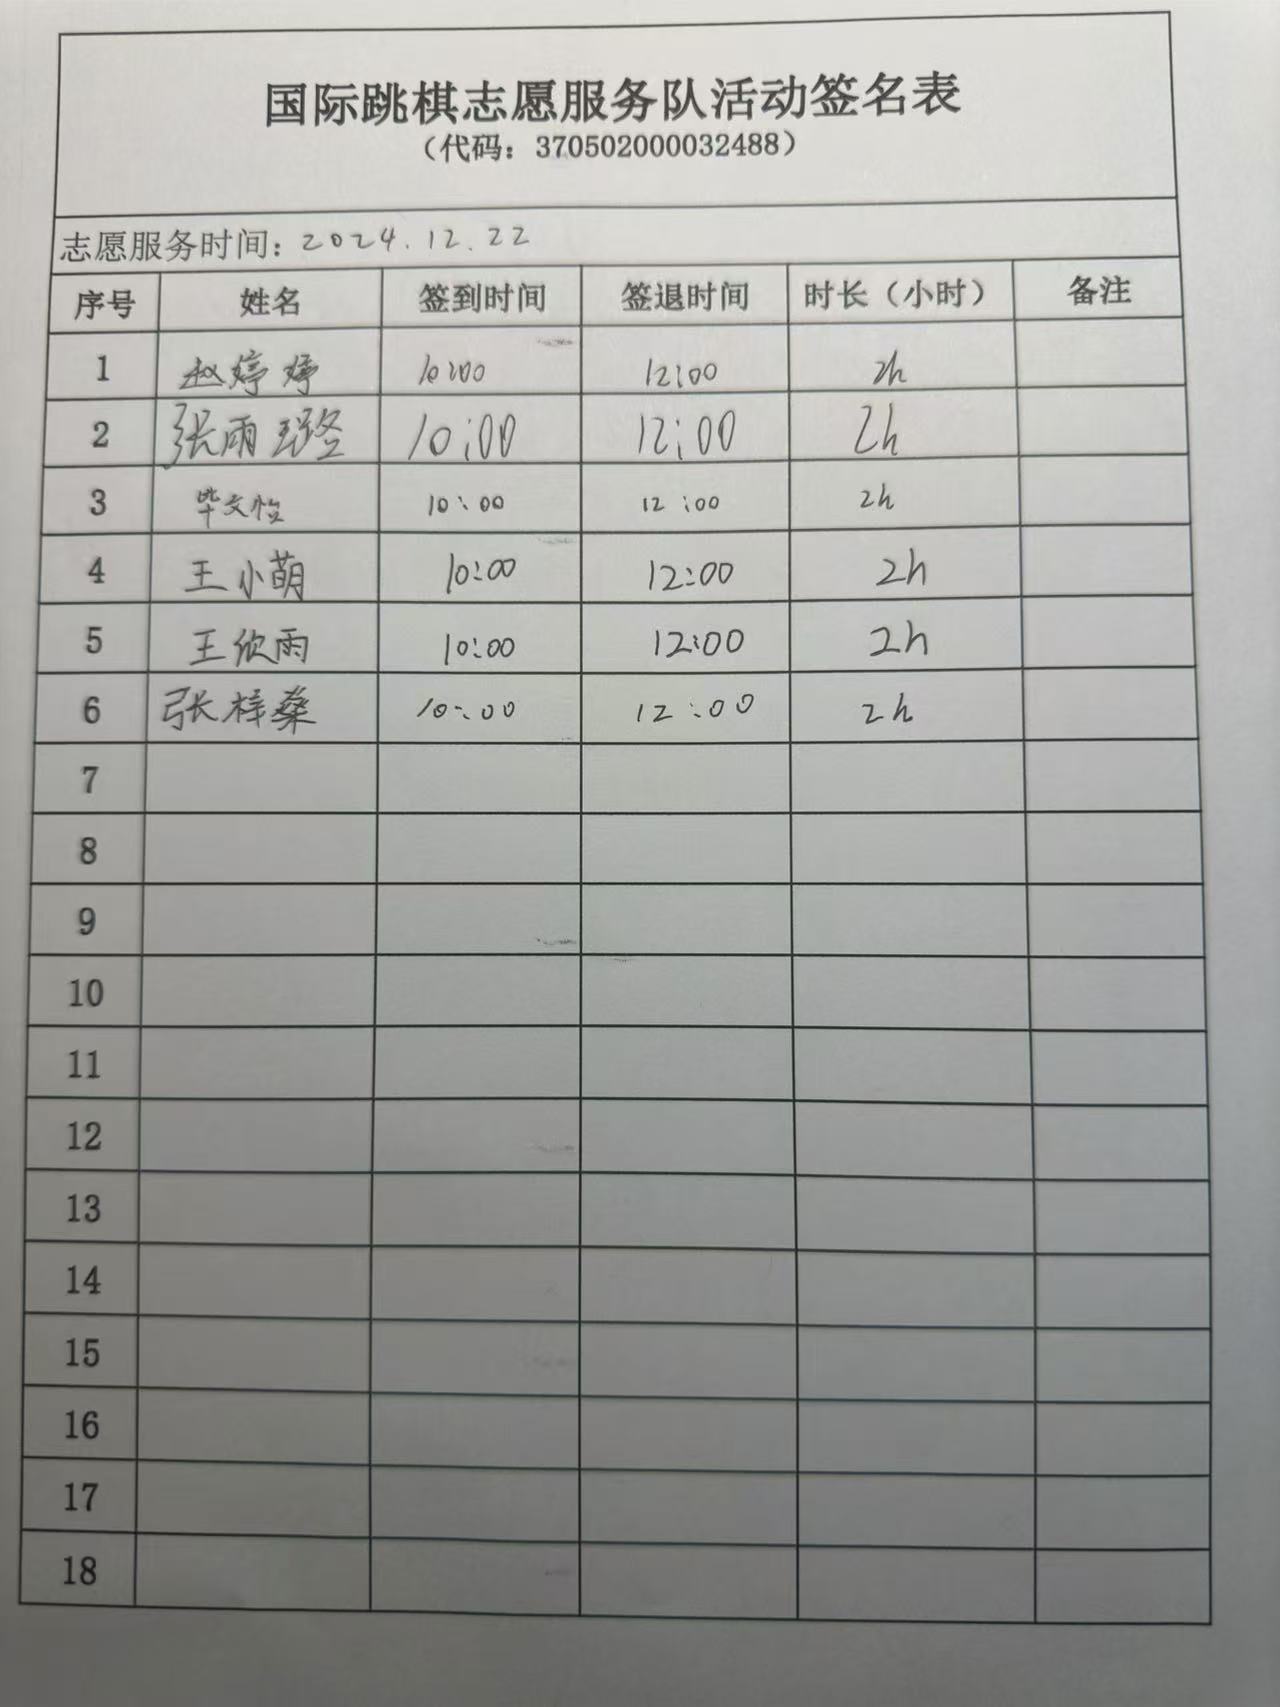 国际跳棋志愿服务队活动签名表
（代码：370502000032488）
志愿服务时间：2024.12.22
序号 姓名 签到时间 签退时间 时长（小时） 备注
1 赵婷婷 10:00 12:00 2h
2 张雨璐 10:00 12:00 2h
3 毕文怡 10:00 12:00 2h
4 王小萌 10:00 12:00 2h
5 王欣雨 10:00 12:00 2h
6 张梓桑 10:00 12:00 2h
7
8
9
10
11
12
13
14
15
16
17
18